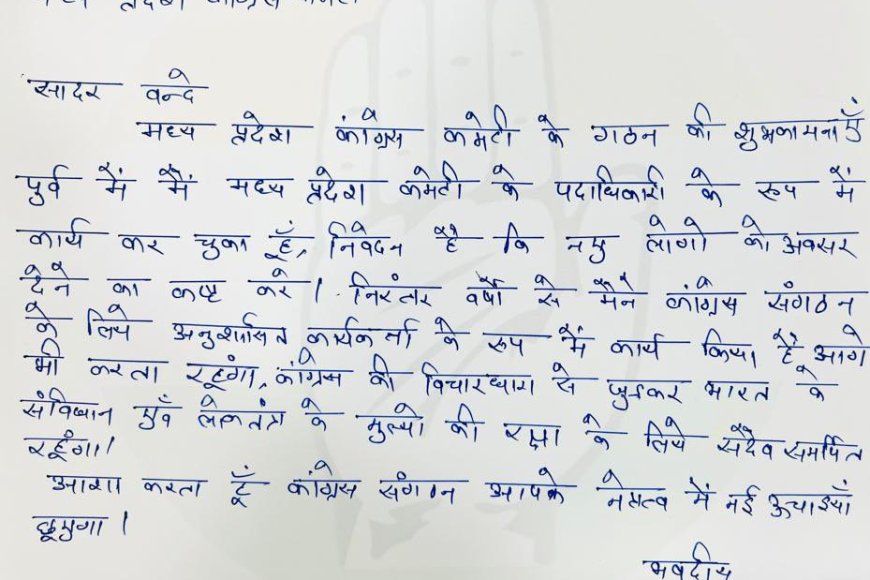 मध्य प्रदेश कांग्रेस कमेटी
सादर वन्दे
मध्य प्रदेश कांग्रेस कमेटी के गठन की शुभकामनाएँ
पुर्व में मैं मध्य प्रदेश कमेटी के पदाधिकारी के रूप में
कार्य कर चुका हूँ, निवेदन है कि नए लोगो को अवसर
देने का कष्ट करे। निरंतर वर्षो से मैने कांग्रेस संगठन
के लिये अनुशासित कार्यकर्ता के रूप में कार्य किया है आगे
भी करता रहूंगा, कांग्रेस की विचारधारा से जुड़कर भारत के
संविधान एवँ लोकतंत्र के मुल्यो की रक्षा के लिये सदैव समर्पित
रहूंगा।
आशा करता हूँ कांग्रेस संगठन आपके नेतृत्व में नई ऊचाईयाँ
छूएगा।
भवदीय